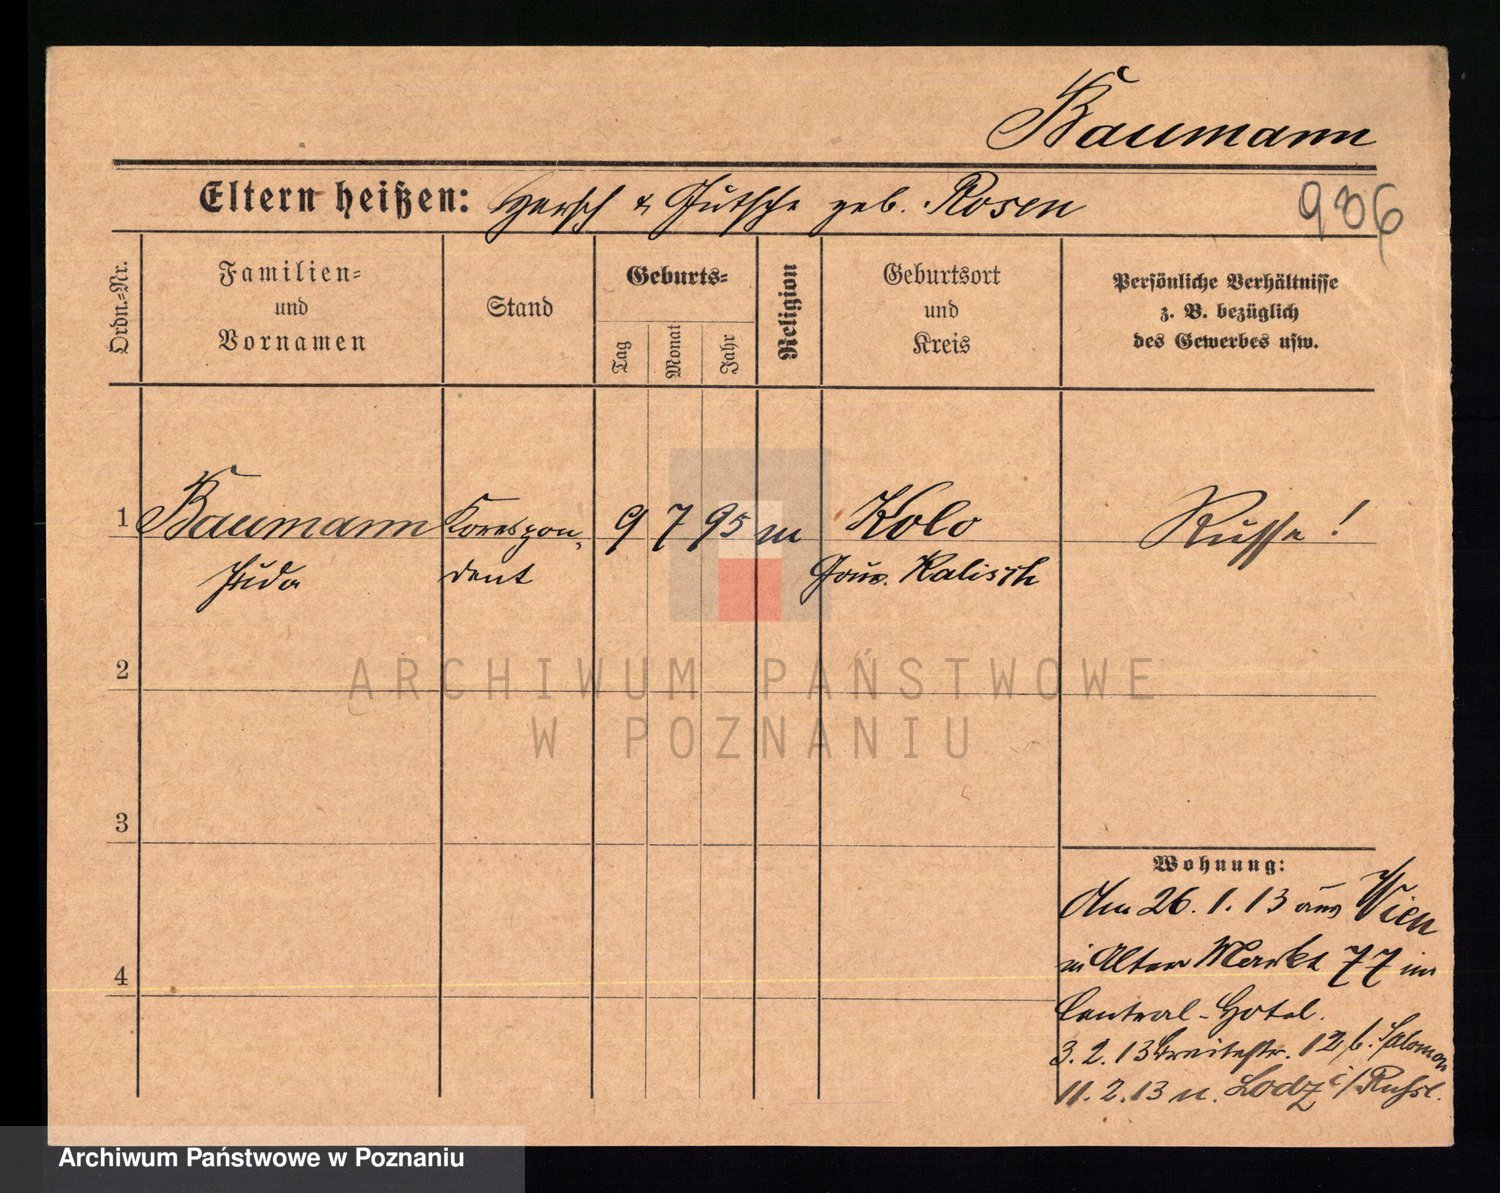 Baumann
Eltern heißen: Hersch & Jutsche geb. Rosen
936
Ordn.-Nr.
Familien-
und
Vornamen
Stand
Geburts-
Tag
Monat
Jahr
Religion
Geburtsort
und
Kreis
Persönliche Verhältnisse
z. B. bezüglich
des Gewerbes usw.
1 Baumann Korrespon- 9 7 95 m Kolo Russe!
Juda dent Gouv. Kalisch
2
ARCHIWUM PAŃSTWOWE
W POZNANIU
3
4
Wohnung:
Am 26.1.13 aus Wien
in Alter Markt 77 im
Central-Hotel.
3.2.13 Breitestr. 12 b. Salomon
11.2.13 n. Lodz i/Russl.
Archiwum Państwowe w Poznaniu